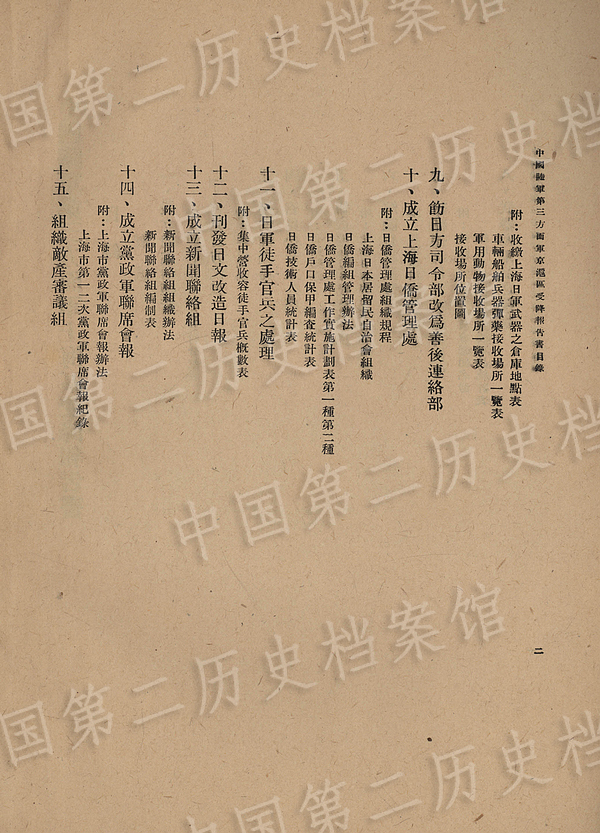 中國陸軍第三方面軍京滬區受降報告書目錄
二
附：收繳上海日軍武器之倉庫地點表
車輛船舶兵器彈藥接收場所一覽表
軍用動物接收場所一覽表
接收場所位置圖
九、飭日方司令部改爲善後連絡部
十、成立上海日僑管理處
附：日僑管理處組織規程
上海日本居留民自治會組織
日僑編組管理辦法
日僑管理處工作實施計劃表第一種第二種
日僑戶口保甲編查統計表
日僑技術人員統計表
十一、日軍徒手官兵之處理
附：集中營收容徒手官兵概數表
十二、刊發日文改造日報
十三、成立新聞聯絡組
附：新聞聯絡組組織辦法
新聞聯絡組編制表
十四、成立黨政軍聯席會報
附：上海市黨政軍聯席會報辦法
上海市第一二次黨政軍聯席會報紀錄
十五、組織敵產審議組
中国第二历史档案馆
中国第二历史档案馆
中国第二历史档案馆
中国第二历史档案馆
中国第二历史档案馆
中国第二历史档案馆